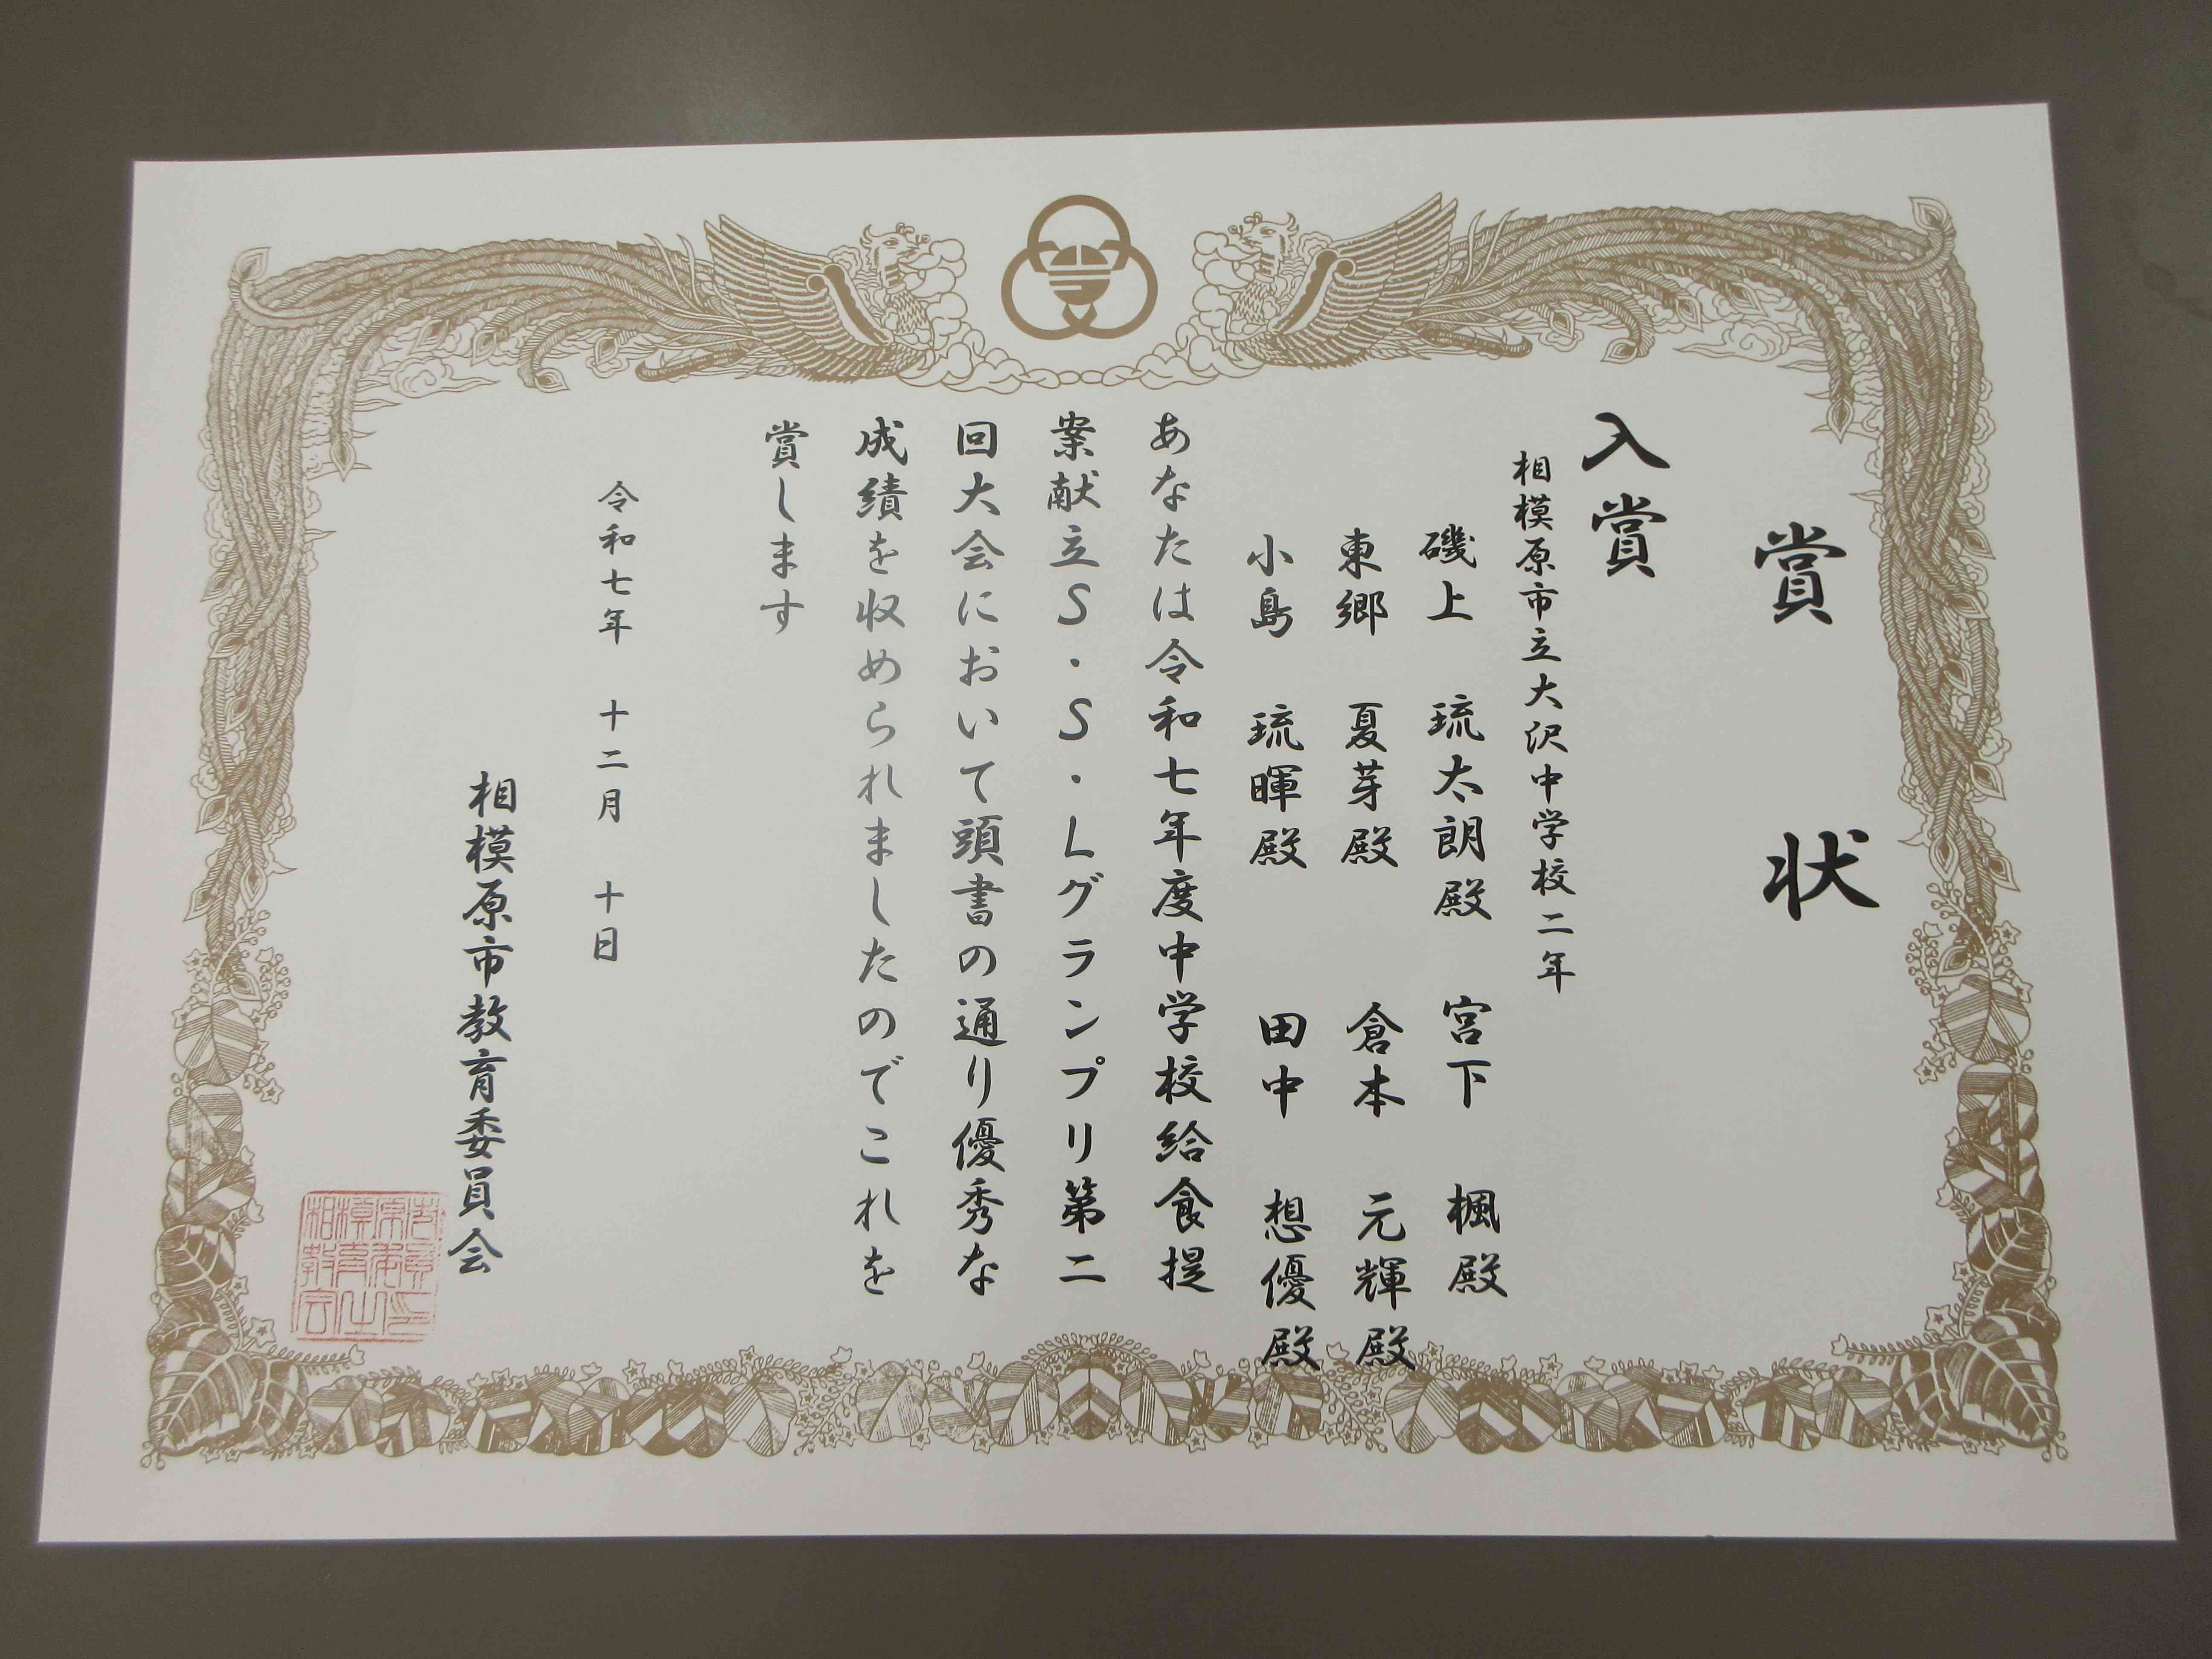 賞状
入賞
相模原市立大沢中学校二年
磯上 琉太朗殿 宮下 楓殿
東郷 夏芽殿 倉本 元輝殿
小島 琉暉殿 田中 想優殿
あなたは令和七年度中学校給食提
案献立S・S・Lグランプリ第二
回大会において頭書の通り優秀な
成績を収められましたのでこれを
賞します
令和七年 十二月 十日
相模原市教育委員会